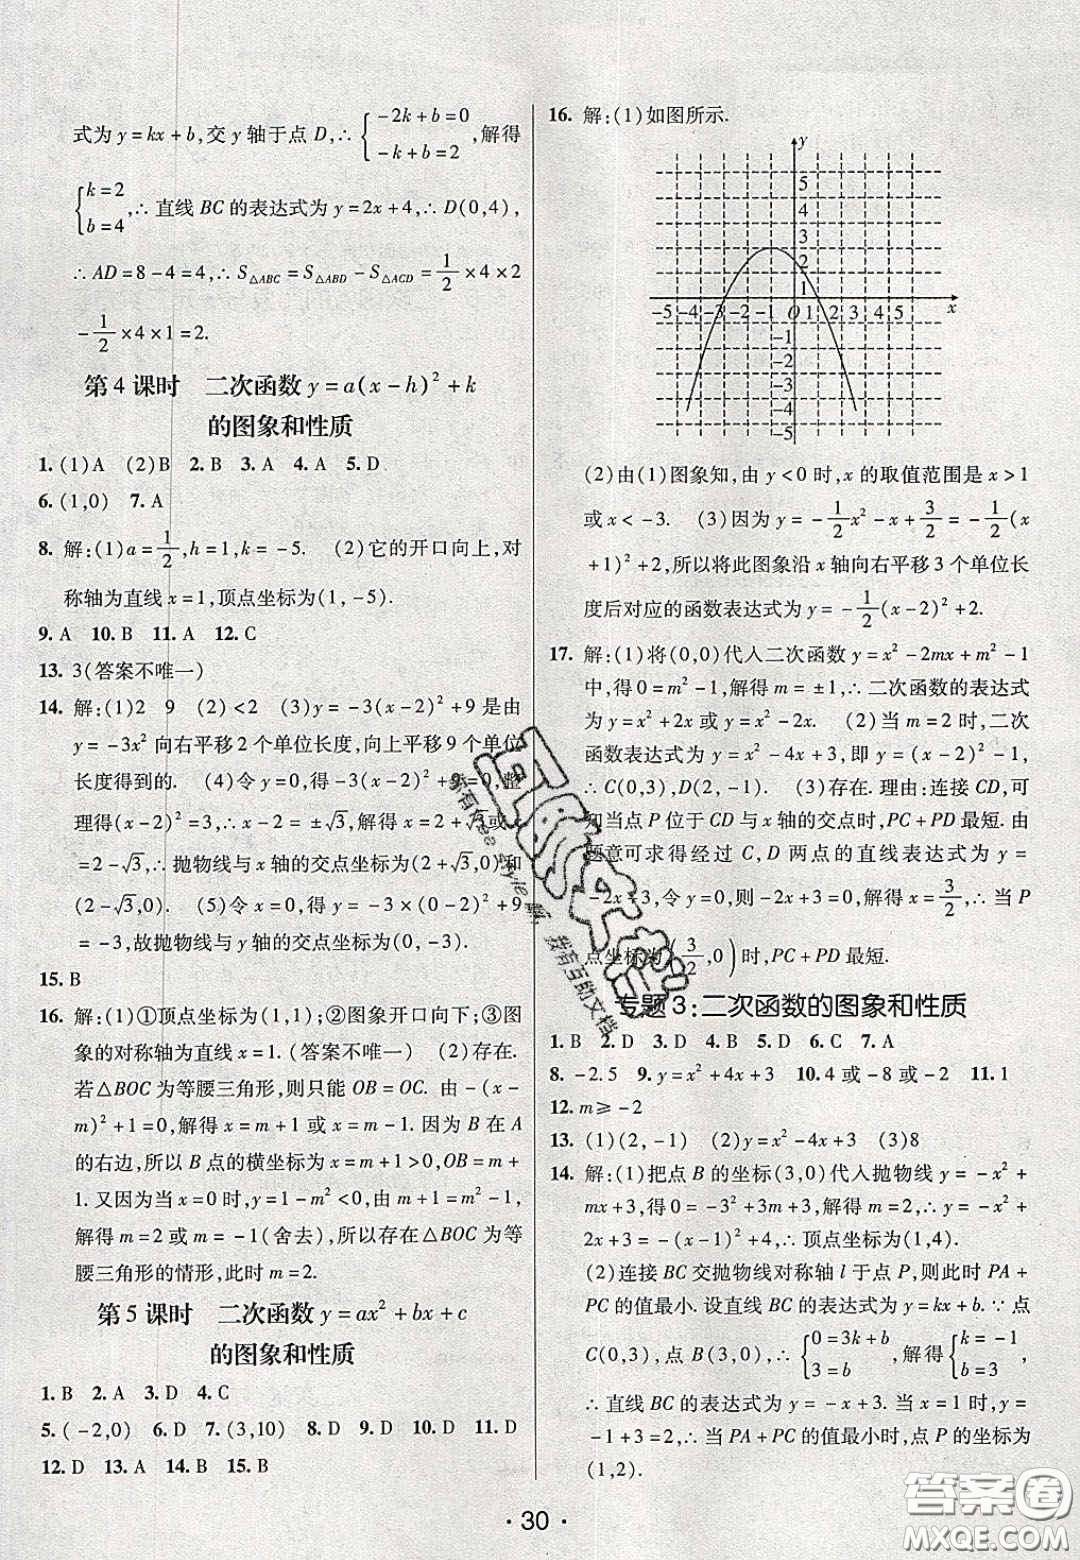 式为 y=kx+b,交 y 轴于点 D,∴{-2k+b=0 -k+b=2,解得
{k=2 b=4,∴直线 BC 的表达式为 y=2x+4,∴D(0,4),
∴AD=8-4=4,∴S△ABC=S△ABD-S△ACD=1/2×4×2
-1/2×4×1=2.
第 4 课时 二次函数 y=a(x-h)²+k
的图象和性质
1.(1)A (2)B 2.B 3.A 4.A 5.D
6.(1,0) 7.A
8.解:(1)a=1/2,h=1,k=-5. (2)它的开口向上,对
称轴为直线 x=1,顶点坐标为(1,-5).
9.A 10.B 11.A 12.C
13.3(答案不唯一)
14.解:(1)2 9 (2)<2 (3)y=-3(x-2)²+9 是由
y=-3x² 向右平移 2 个单位长度,向上平移 9 个单位
长度得到的. (4)令 y=0,得-3(x-2)²+9=0,整
理得(x-2)²=3,∴x-2=±√3,解得 x=2+√3或 x
=2-√3,∴抛物线与 x 轴的交点坐标为(2+√3,0)和
(2-√3,0). (5)令 x=0,得 y=-3×(0-2)²+9
=-3,故抛物线与 y 轴的交点坐标为(0,-3).
15.B
16.解:(1)①顶点坐标为(1,1);②图象开口向下;③图
象的对称轴为直线 x=1.(答案不唯一) (2)存在.
若△BOC 为等腰三角形,则只能 OB=OC. 由-(x-
m)²+1=0,解得 x=m+1 或 x=m-1. 因为 B 在 A
的右边,所以 B 点的横坐标为 x=m+1>0,OB=m+
1. 又因为当 x=0 时,y=1-m²<0,由 m+1=m²-1,
解得 m=2 或 m=-1(舍去),所以存在△BOC 为等
腰三角形的情形,此时 m=2.
第 5 课时 二次函数 y=ax²+bx+c
的图象和性质
1.B 2.A 3.D 4.C
5.(-2,0) 6.D 7.(3,10) 8.D 9.D 10.D 11.D
12.D 13.A 14.B 15.B
16.解:(1)如图所示.
y
5
4
3
2
1
-5-4-3-2-1 O 1 2 3 4 5 x
-1
-2
-3
-4
-5
(2)由(1)图象知,由 y<0 时,x 的取值范围是 x>1
或 x<-3. (3)因为 y=-1/2x²-x+3/2=-1/2(x
+1)²+2,所以将此图象沿 x 轴向右平移 3 个单位长
度后对应的函数表达式为 y=-1/2(x-2)²+2.
17.解:(1)将(0,0)代入二次函数 y=x²-2mx+m²-1
中,得 0=m²-1,解得 m=±1,∴二次函数的表达式
为 y=x²+2x 或 y=x²-2x. (2)当 m=2 时,二次
函数表达式为 y=x²-4x+3,即 y=(x-2)²-1,
∴C(0,3),D(2,-1). (3)存在. 理由:连接 CD,可
知当点 P 位于 CD 与 x 轴的交点时,PC+PD 最短. 由
题意可求得经过 C,D 两点的直线表达式为 y=
-2x+3,令 y=0,则-2x+3=0,解得 x=3/2,∴当 P
点坐标为(3/2,0)时,PC+PD 最短.
专题 3:二次函数的图象和性质
1.B 2.D 3.D 4.B 5.D 6.C 7.A
8.-2.5 9.y=x²+4x+3 10.4 或-8 或-2 11.1
12.m≥-2
13.(1)(2,-1) (2)y=x²-4x+3 (3)8
14.解:(1)把点 B 的坐标(3,0)代入抛物线 y=-x²+
mx+3,得 0=-3²+3m+3,解得 m=2,∴y=-x²+
2x+3=-(x-1)²+4,∴顶点坐标为(1,4).
(2)连接 BC 交抛物线对称轴 l 于点 P,则此时 PA+
PC 的值最小. 设直线 BC 的表达式为 y=kx+b. ∵点
C(0,3),点 B(3,0),∴{0=3k+b 3=b,解得{k=-1 b=3,
∴直线 BC 的表达式为 y=-x+3. 当 x=1 时,y=
-1+3=2,∴当 PA+PC 的值最小时,点 P 的坐标为
(1,2).
·30·
答案圈
MXQE.COM